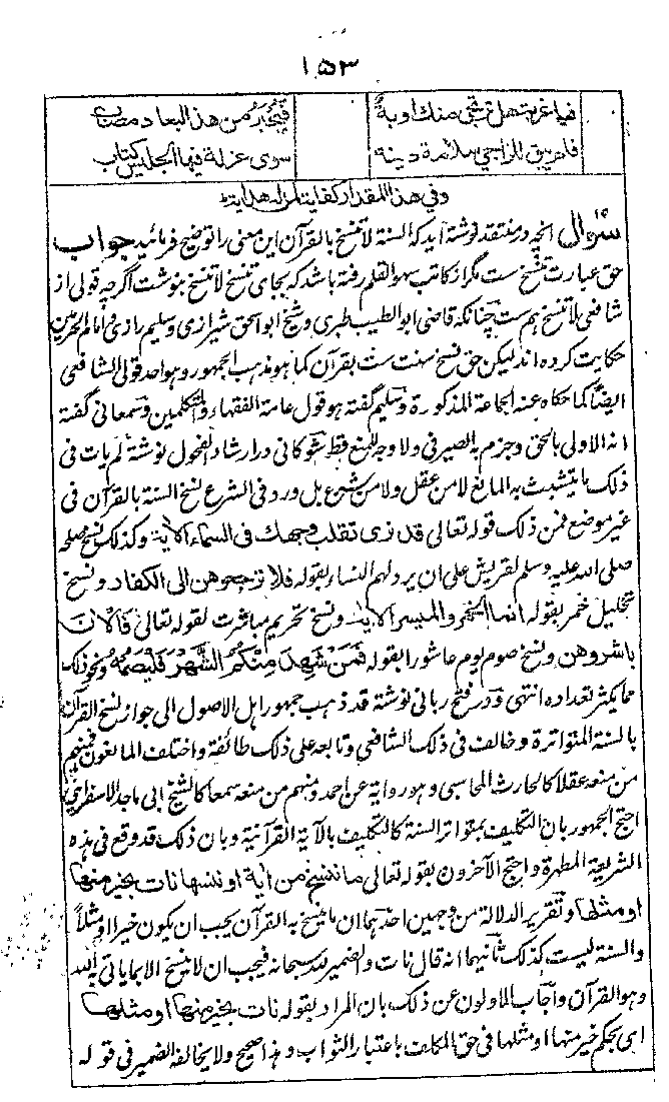 ۱۵۳
فيا غربة هل ترتجى منك اوبة فيخبر من هذا البعاد مصاب
فلم يبق للراجي سلامة دينه سوى عزلة فيها الجليس كتاب
وفي هذا المقدار كفاية لمن له هداية
سؤال انچه در منتقد نوشته آید که السنة لا تنسخ بالقرآن این معنی را توضیح فرمائید جواب
حق عبارت تنسخ ست مگر از کاتب سهو القلم رفته باشد که بجای تنسخ لا تنسخ بنوشت اگرچه قولی از
شافعی لا تنسخ هم ست چنانکه قاضی ابو الطیب طبری و شیخ ابو اسحق شیرازی و سلیم رازی و امام الحرمین
حکایت کرده اند لیکن حق نسخ سنت ست بقرآن کما هو مذهب الجمهور و هو احد قولی الشافعی
ایضا کما حکاه عنه الجماعة المذکورة و سلیم گفته هو قول عامة الفقهاء والمتکلمین و سمعانی گفته
انه الاولی بالحق وجزم به الصیرفی ولا وجه للمنع قط شوکانی در ارشاد الفحول نوشته لم یات فی
ذلک ما یتشبث به المانع لا من عقل ولا من شرع بل ورد فی الشرع نسخ السنة بالقرآن فی
غیر موضع فمن ذلک قوله تعالی قد نری تقلب وجهک فی السماء الآیة وکذلک نسخ صلحه
صلی الله علیه وسلم لقریش علی ان یرد لهم النساء بقوله فلا ترجعوهن الی الکفار و نسخ
تحلیل خمر بقوله انما الخمر والمیسر الآیة و نسخ تحریم مباشرت لقوله تعالی فالآن
باشروهن و نسخ صوم یوم عاشورا بقوله فَمَنْ شَهِدَ مِنْكُمُ الشَّهْرَ فَلْيَصُمْهُ ونحو ذلک
مما یکثر تعداده انتهی و در فتح ربانی نوشته قد ذهب جمهور اهل الاصول الی جواز نسخ القرآن
بالسنة المتواترة وخالف فی ذلک الشافعی وتابعه علی ذلک طائفة واختلف المانعون فمنهم
من منعه عقلا کالحارث المحاسبی وهو روایة عن احمد ومنهم من منعه سمعا کالشیخ ابی حامد الاسفراینی
احتج الجمهور بان التکلیف بمتواتر السنة کالتکلیف بالآیة القرآنیة وبان ذلک قد وقع فی هذه
الشریعة المطهرة واحتج الآخرون بقوله تعالی ما ننسخ من آیة او ننسها نات بخیر منها
او مثلها وتقریر الدلالة من وجهین احدهما ان ما ینسخ به القرآن یجب ان یکون خیرا او مثلاً
والسنة لیست کذلک ثانیهما انه قال نات والضمیر لله سبحانه فیجب ان لا ینسخ الا بما یاتی به الله
وهو القرآن واجاب الاولون عن ذلک بان المراد بقوله نات بخیر منها او مثلها
ای بحکم خیر منها او مثلها فی حق المکلف باعتبار الثواب وهذا صحیح ولا یخالفه الضمیر فی قوله